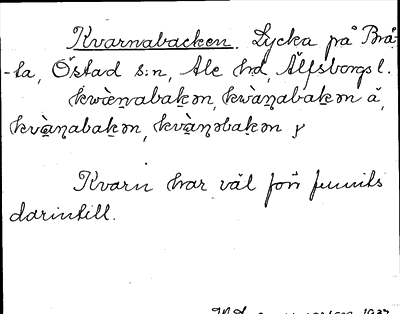 Kvarnabacken. Lycka på Brå-
-ta, Östad s:n, Ale hd, Älfsborgs l.
kwæ̀ṇabak̬ən, kwàṇabak̬ən å,
kvàṇabak̬ən, kvàṇəbak̬ən y
Kvarn har väl förr funnits
darintill.
1937